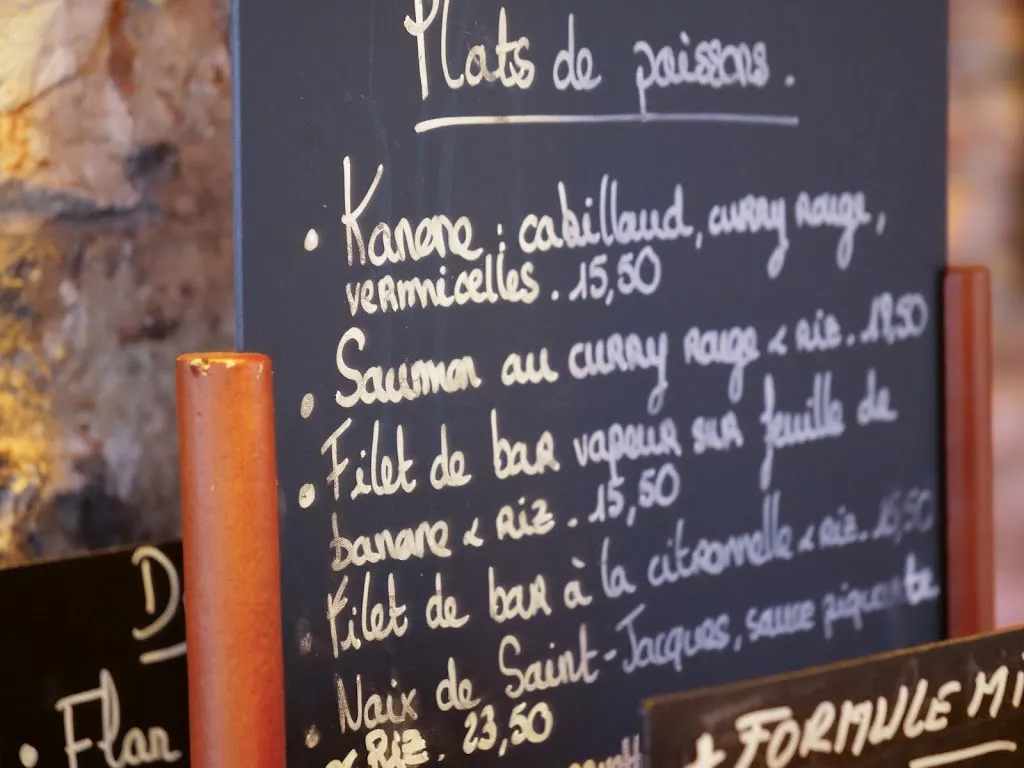 Plats de poissons.
• Kanane : cabillaud, curry rouge,
vermicelles. 15,50
• Saumon au curry rouge & riz. 19,50
• Filet de bar vapeur sur feuille de
banane & riz. 15,50
• Filet de bar à la citronnelle & riz. 15,50
• Noix de Saint-Jacques, sauce piquante
& riz. 23,50
D
• Flan
* FORMULE MI